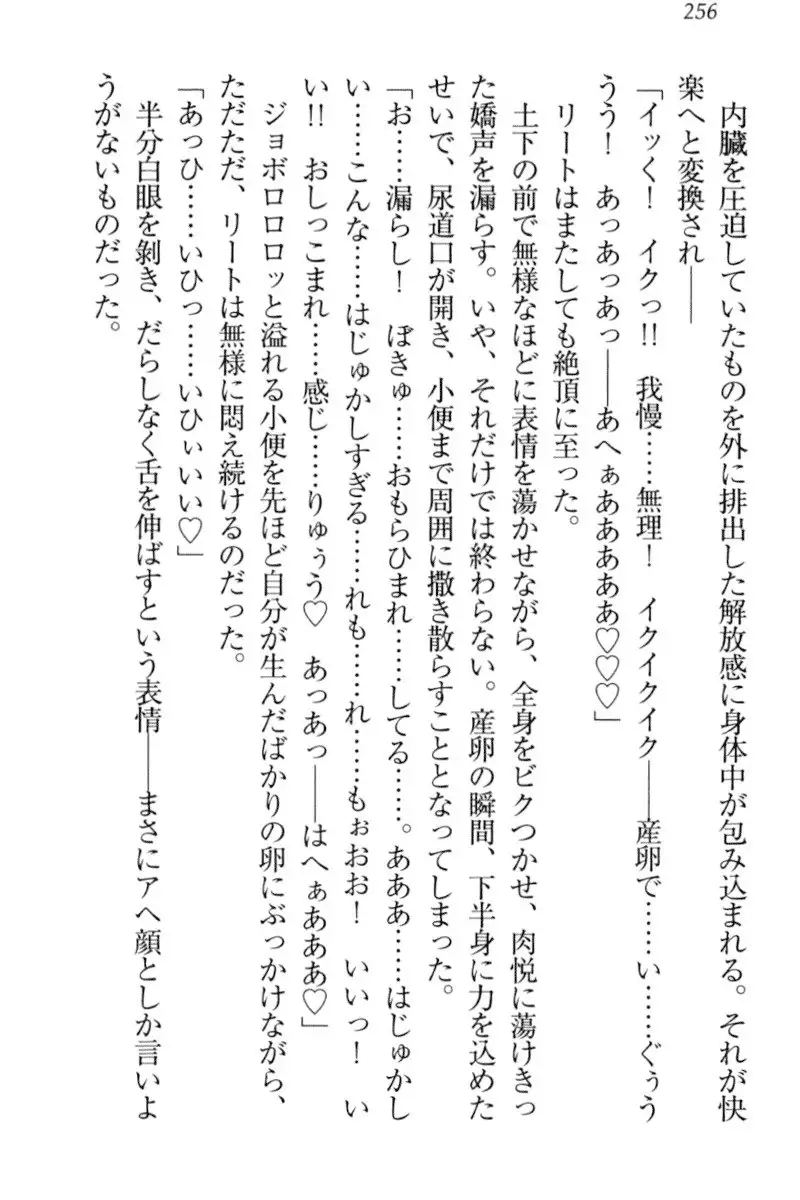 256
内臓を圧迫していたものを外に排出した解放感に身体中が包み込まれる。それが快
楽へと変換され――
「イッく！　イクっ!!　我慢……無理！　イクイクイク――産卵で……い……ぐぅう
うう！　あっあっあっ――あへぁあああああ♡♡♡」
リートはまたしても絶頂に至った。
土下の前で無様なほどに表情を蕩かせながら、全身をビクつかせ、肉悦に蕩けきっ
た嬌声を漏らす。いや、それだけでは終わらない。産卵の瞬間、下半身に力を込めた
せいで、尿道口が開き、小便まで周囲に撒き散らすこととなってしまった。
「お……漏らし！　ぼきゅ……おもらひまれ……してる……。あああ……はじゅかし
い……こんな……はじゅかしすぎる……れも……れ……もぉおお！　いいっ！　い
い!!　おしっこまれ……感じ……りゅぅう♡　あっあっ――はへぁあああ♡」
ジョボロロロッと溢れる小便を先ほど自分が生んだばかりの卵にぶっかけながら、
ただただ、リートは無様に悶え続けるのだった。
「あっひ……いひっ……いひぃいい♡」
半分白眼を剝き、だらしなく舌を伸ばすという表情――まさにアヘ顔としか言いよ
うがないものだった。